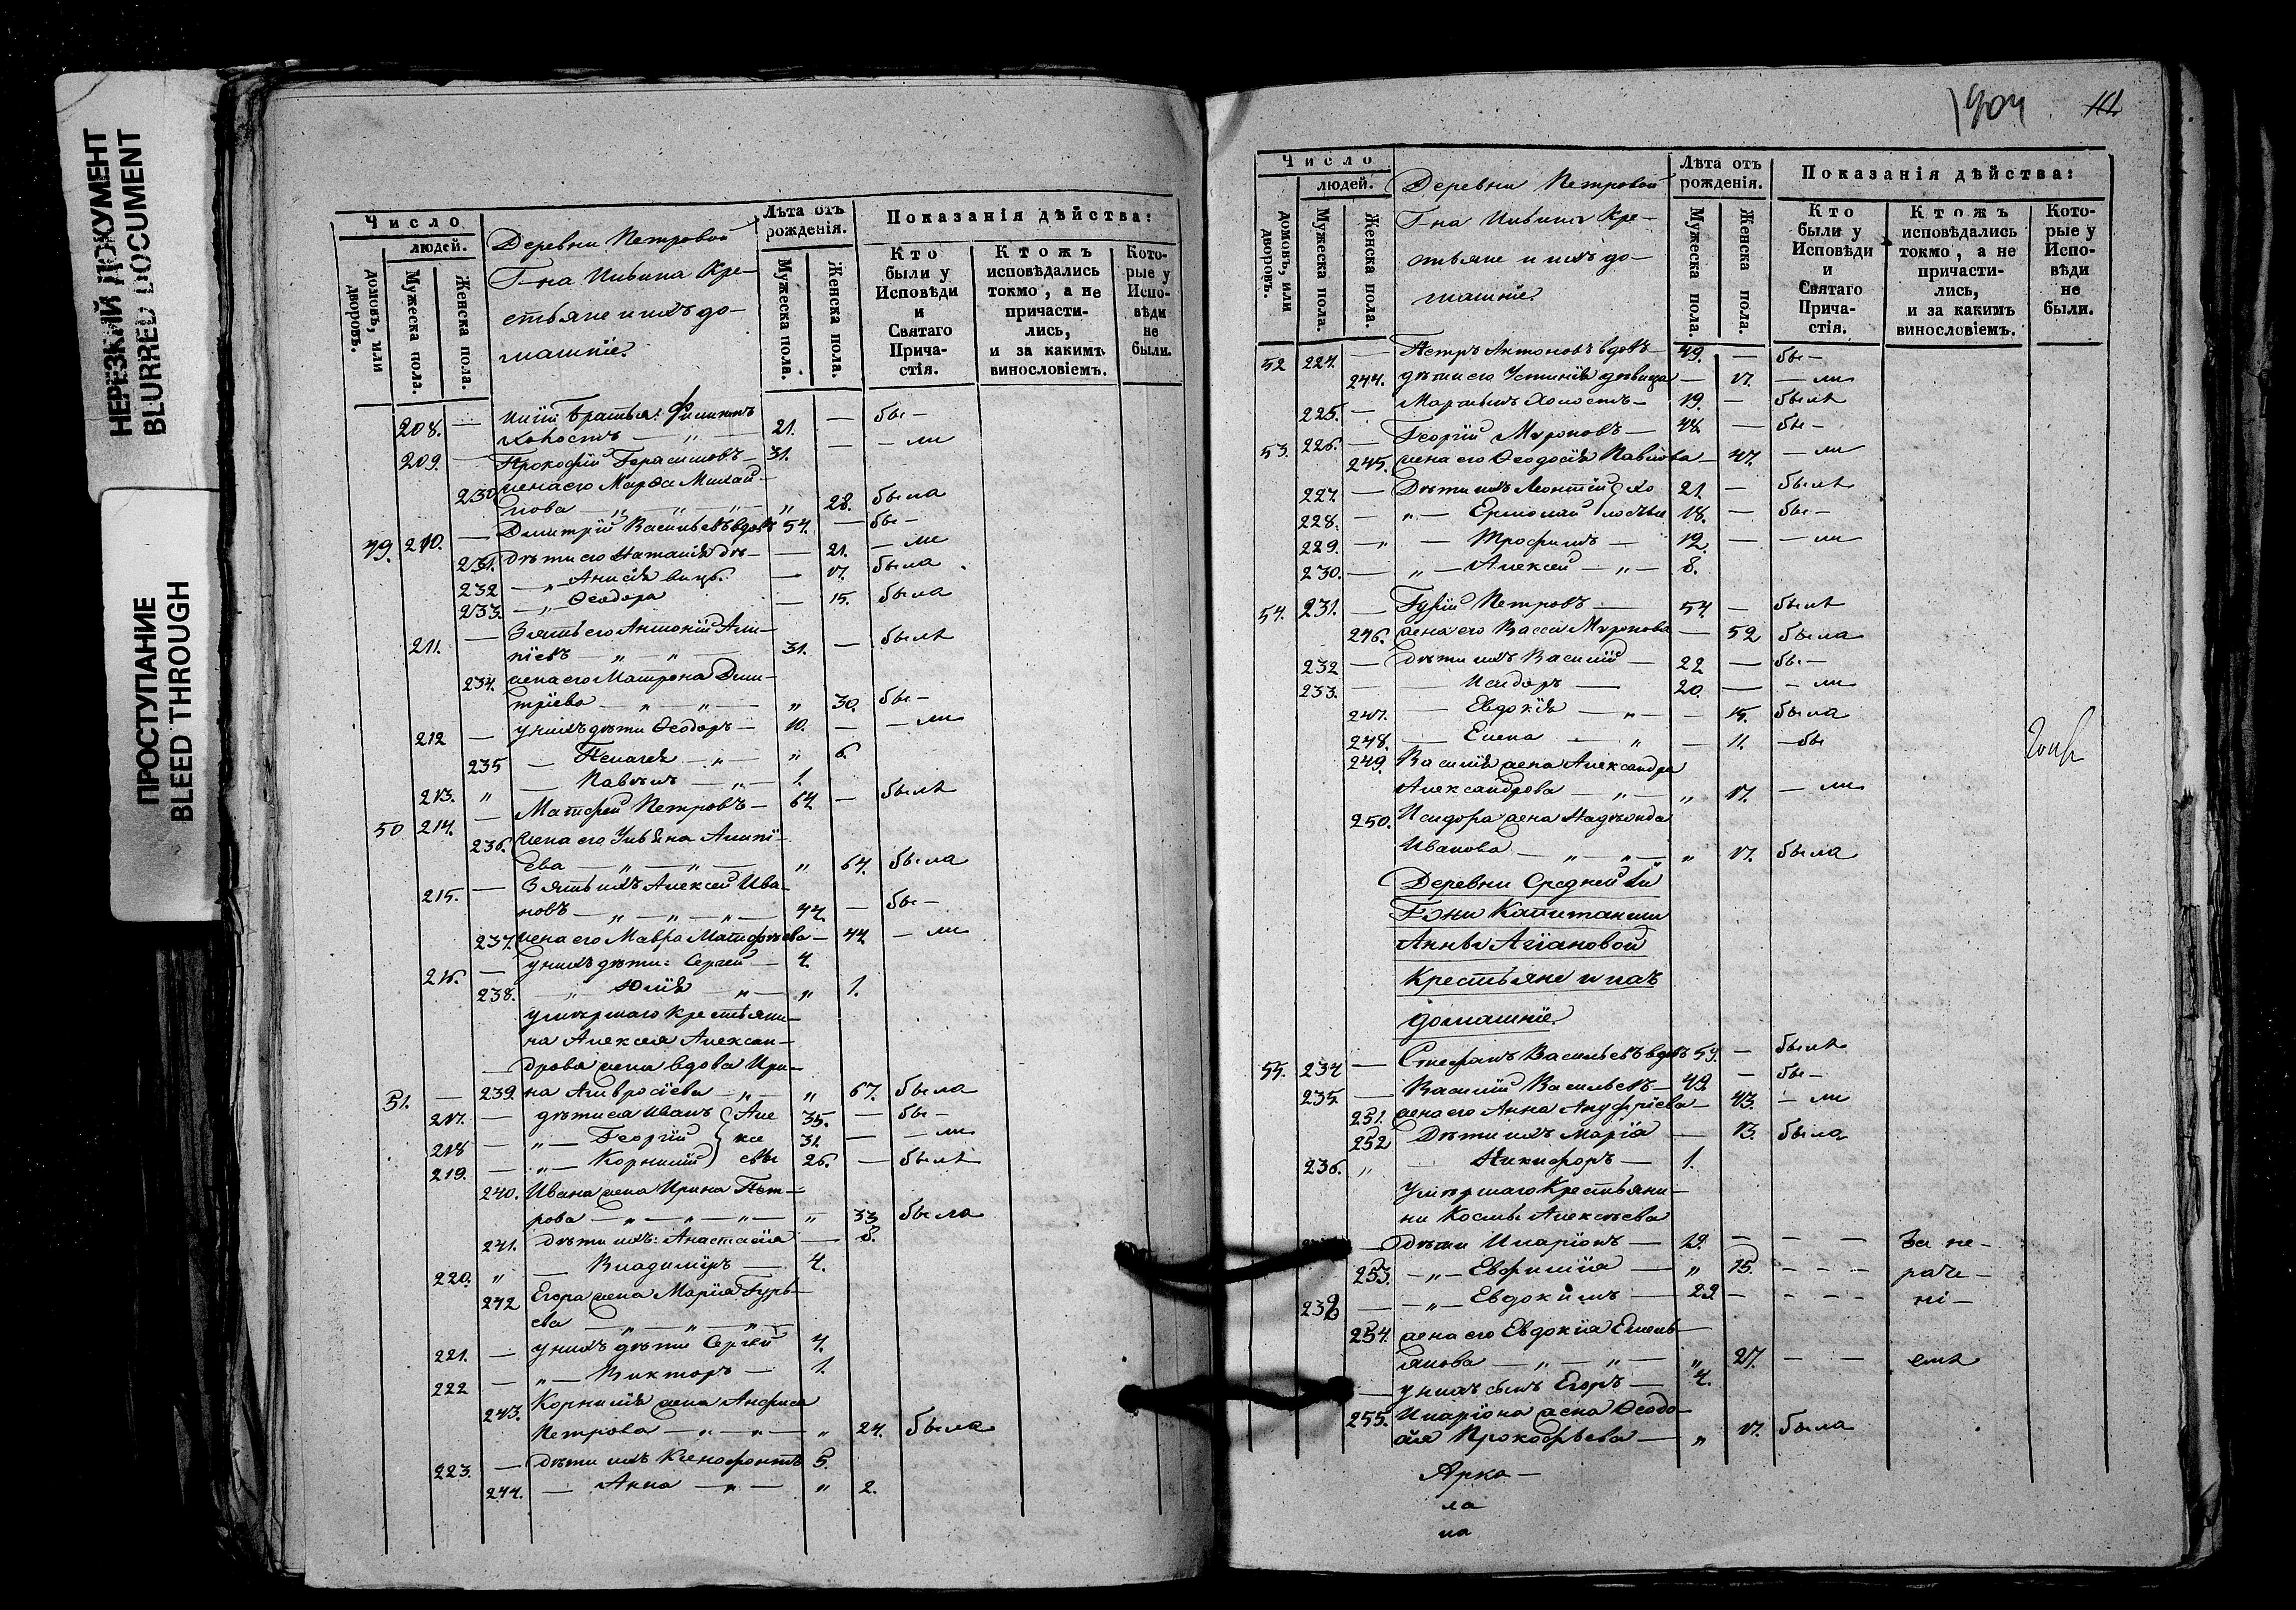 НЕРЕЗКИЙ ДОКУМЕНТ
BLURRED DOCUMENT
ПРОСТУПАНИЕ
BLEED THROUGH
Число
людей.
домовъ, или дворовъ.
Мужеска пола.
Женска пола.
Деревни Петровой
Г-на Ивина Кре-
стьяне и ихъ до-
машніе.
Лѣта отъ рожденія.
Мужеска пола.
Женска пола.
Показанія дѣйства:
Кто были у Исповѣди и Святаго Прича-стія.
Ктожъ исповѣдались токмо, а не причасти-лись, и за какимъ винословіемъ.
Кото-рые у Испо-вѣди не были.
208. — братья: Филиппъ
холостъ — „ — 21. — бы-
209. — Прокофій Герасимовъ — 31. — — ли
230 жена его Марѳа Михай-
лова — „ — „ — „ 28. была
49. 210. — Димитрій Васильевъ вдовъ 54. — бы-
231. дѣти его Наталія дѣ- — 21. — ли
232 — „ Анисія вицы. — 17. была
233. — „ Ѳеодора — 15. была
211. — Зять его Антоній Али-
піевъ — „ — „ — 31. — былъ
234. жена его Матрона Дми-
тріева — „ — „ — „ 30. бы-
212 — у нихъ дѣти Ѳеодоръ — 10. — — ли
235 — Пелагея — „ — „ 6.
213. „ — Павелъ — „ — 1.
50 214. — Матфей Петровъ — 64. — былъ
236. жена его Ульяна Алипі-
ева — „ — „ — „ 64. была
215. — Зять ихъ Алексей Ива-
новъ — „ — „ — „ — 44. — бы-
237. жена его Мавра Матфѣева — 44. — ли
216. — у нихъ дѣти: Сергей — 4.
238. — „ Юлія — „ — „ 1.
умѣршаго крестьяни-
на Алексея Алексан-
дрова жена вдова Ири-
51. — 239. на Амвросіева — „ — „ 67. была
217. — дѣти ея Иванъ Але 35. — бы-
218 — „ — Георгій ксе 31. — — ли
219. — „ — Корнилій евы 26. — былъ
240. Ивана жена Ирина Пет-
рова — „ — „ — „ — „ 33 была
241. дѣти ихъ: Анастасія — 8.
220. „ — Владиміръ — 4.
242 Егора жена Марія Гурь-
ева — „ — „ — „ —
221. — у нихъ дѣти Сергей 4.
222 — „ — Викторъ — 1.
243. Корнилія жена Анфиса
Петрова — „ — „ — „ 24. была
223. — дѣти ихъ Ксенофонтъ 5.
244. — Анна — „ — „ 2.
904
Число
людей.
домовъ, или дворовъ.
Мужеска пола.
Женска пола.
Деревни Петровой
Г-на Ивина Кре-
стьяне и ихъ до-
машніе.
Лѣта отъ рожденія.
Мужеска пола.
Женска пола.
Показанія дѣйства:
Кто были у Исповѣди и Святаго Прича-стія.
Ктожъ исповѣдались токмо, а не причасти-лись, и за какимъ винословіемъ.
Кото-рые у Испо-вѣди не были.
52 224. — Петръ Антоновъ вдовъ — 49. — бы-
244. дѣти его Устинія дѣвица — 17. — ли
225. — Мартынъ холостъ — 19. — былъ
53. 226. — Георгій Мѵроновъ — 48. — бы-
245. жена его Ѳеодосія Павлова — 47. — ли
227. — Дѣти ихъ Леонтій хо 21. — былъ
228. — „ — Ермолай лостые 18. — бы-
229. — „ — Трофимъ — 12. — — ли
230. — „ — Алексей — „ — 8.
54. 231. — Гурій Петровъ — 54. — былъ
246. жена его Васса Мѵронова — 52 была
232 — дѣти ихъ Василій — 22 — бы-
233. — — Исидоръ — 20. — — ли
247. — Евдокія — „ — — 15. была
248. — Елена — „ — 11. — бы
249. Василія жена Александра
Александрова — „ — „ 17. — ли
250. Исидора жена Надѣжда
Иванова — „ — „ — „ 17. была
Деревни Средней
Г-жи Капитанши
Анны
Крестьяне и ихъ
домашніе.
55. 234 — Стефанъ Васильевъ вдовъ 59. — былъ
235 — Василій Васильевъ — 42 — бы-
251. жена его Анна Ануфріева — 43. — ли
252 Дѣти ихъ Марія — 13. была
236. „ Никифоръ — 1.
Умѣршаго Крестьяни-
на Космы Алексѣева
— дѣти Иларіонъ — 19. — — — За не-
253. — „ — Евфимія — „ 15. — — — раче-
238 — — „ — Евдокимъ — 29 — — — — ні-
254. жена его Евдокія Емель-
янова — „ — „ — „ 27. — — емъ
— у нихъ сынъ Егоръ — 4.
255. Иларіона жена Ѳеодо-
сія Прокофьева — „ 17. была